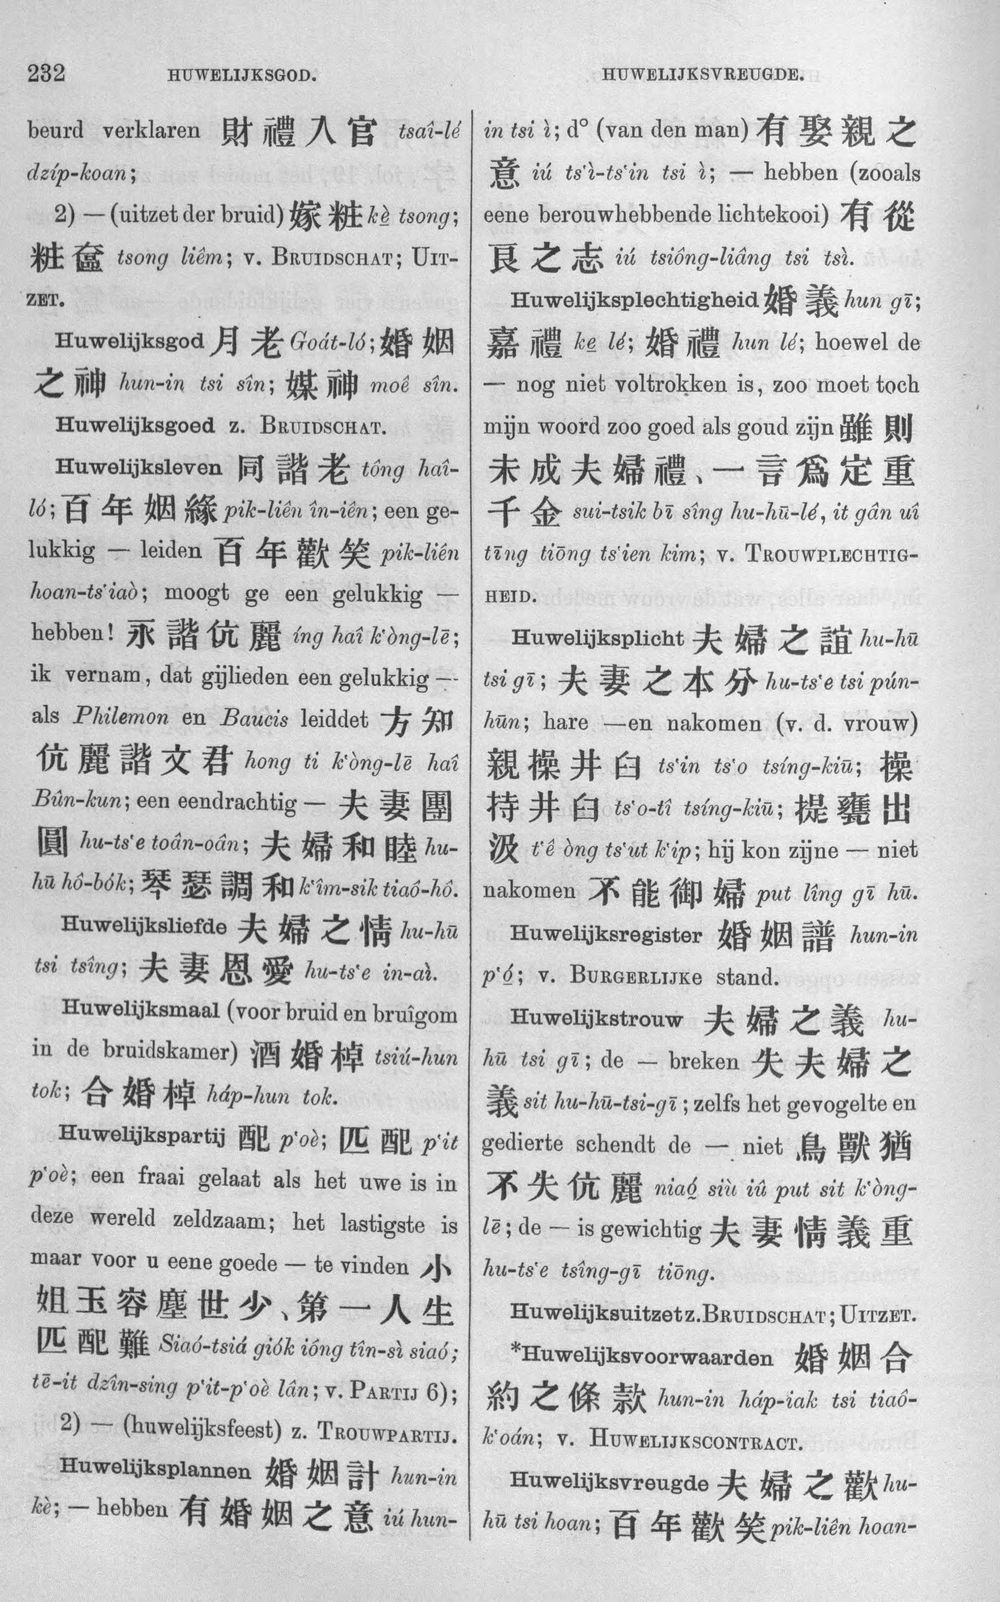 232
HUWELIJKSGOD.
HUWELIJKSVREUGDE.
beurd verklaren 財禮入官 tsaî-lé
dzíp-koan;
2) — (uitzet der bruid) 嫁粧 kè̱ tsong;
粧奩 tsong liêm; v. BRUIDSCHAT; UIT-
ZET.
Huwelijksgod 月老 Goát-ló; 婚姻
之神 hun-in tsi sîn; 媒神 moê sîn.
Huwelijksgoed z. BRUIDSCHAT.
Huwelijksleven 同諧老 tông haî-
ló; 百年姻緣 pik-liên în-iên; een ge-
lukkig — leiden 百年歡笑 pik-liên
hoan-ts‘iaò; moogt ge een gelukkig —
hebben! 永諧伉麗 íng haî k‘òng-lē;
ik vernam, dat gijlieden een gelukkig —
als Philemon en Baucis leiddet 方知
伉麗諧文君 hong ti k‘òng-lē haî
Bûn-kun; een eendrachtig — 夫妻團
圓 hu-ts‘e toân-oân; 夫婦和睦 hu-
hū hô-bók; 琴瑟調和 k‘îm-sik tiaô-hô.
Huwelijksliefde 夫婦之情 hu-hū
tsi tsîng; 夫妻恩愛 hu-ts‘e in-aì.
Huwelijksmaal (voor bruid en bruîgom
in de bruidskamer) 酒婚棹 tsiú-hun
tok; 合婚棹 háp-hun tok.
Huwelijkspartij 配 p‘oè; 匹配 p‘it
p‘oè; een fraai gelaat als het uwe is in
deze wereld zeldzaam; het lastigste is
maar voor u eene goede — te vinden 小
姐玉容塵世少、第一人生
匹配難 Siaó-tsiá giók ióng tîn-sì siaó;
tē-it dzîn-sing p‘it-p‘oè lân; v. PARTIJ 6);
2) — (huwelijksfeest) z. TROUWPARTIJ.
Huwelijksplannen 婚姻計 hun-in
kè; — hebben 有婚姻之意 iú hun-
in tsi ì; d° (van den man) 有娶親之
意 iú ts‘ì-ts‘in tsi ì; — hebben (zooals
eene berouwhebbende lichtekooi) 有從
良之志 iú tsiông-liâng tsi tsì.
Huwelijksplechtigheid 婚義 hun gī;
嘉禮 ke̱ lé; 婚禮 hun lé; hoewel de
— nog niet voltrokken is, zoo moet toch
mijn woord zoo goed als goud zijn 雖則
未成夫婦禮、一言爲定重
千金 sui-tsik bī sîng hu-hū-lé, it gân uî
tīng tiōng ts‘ien kim; v. TROUWPLECHTIG-
HEID.
Huwelijksplicht 夫婦之誼 hu-hū
tsi gī; 夫妻之本分 hu-ts‘e tsi pún-
hūn; hare —en nakomen (v. d. vrouw)
親操井臼 ts‘in ts‘o tsíng-kiū; 操
持井臼 ts‘o-tî tsíng-kiū; 提甕出
汲 t‘ê òng ts‘ut k‘ip; hij kon zijne — niet
nakomen 不能御婦 put lîng gī hū.
Huwelijksregister 婚姻譜 hun-in
p‘ó̱; v. BURGERLIJKe stand.
Huwelijkstrouw 夫婦之義 hu-
hū tsi gī; de — breken 失夫婦之
義 sit hu-hū-tsi-gī; zelfs het gevogelte en
gedierte schendt de — niet 鳥獸猶
不失伉麗 niaó̱ siù iû put sit k‘òng-
lē; de — is gewichtig 夫妻情義重
hu-ts‘e tsîng-gī tiōng.
Huwelijksuitzet z. BRUIDSCHAT; UITZET.
*Huwelijksvoorwaarden 婚姻合
約之條款 hun-in háp-iak tsi tiaô-
k‘oán; v. HUWELIJKSCONTRACT.
Huwelijksvreugde 夫婦之歡 hu-
hū tsi hoan; 百年歡笑 pik-liên hoan-